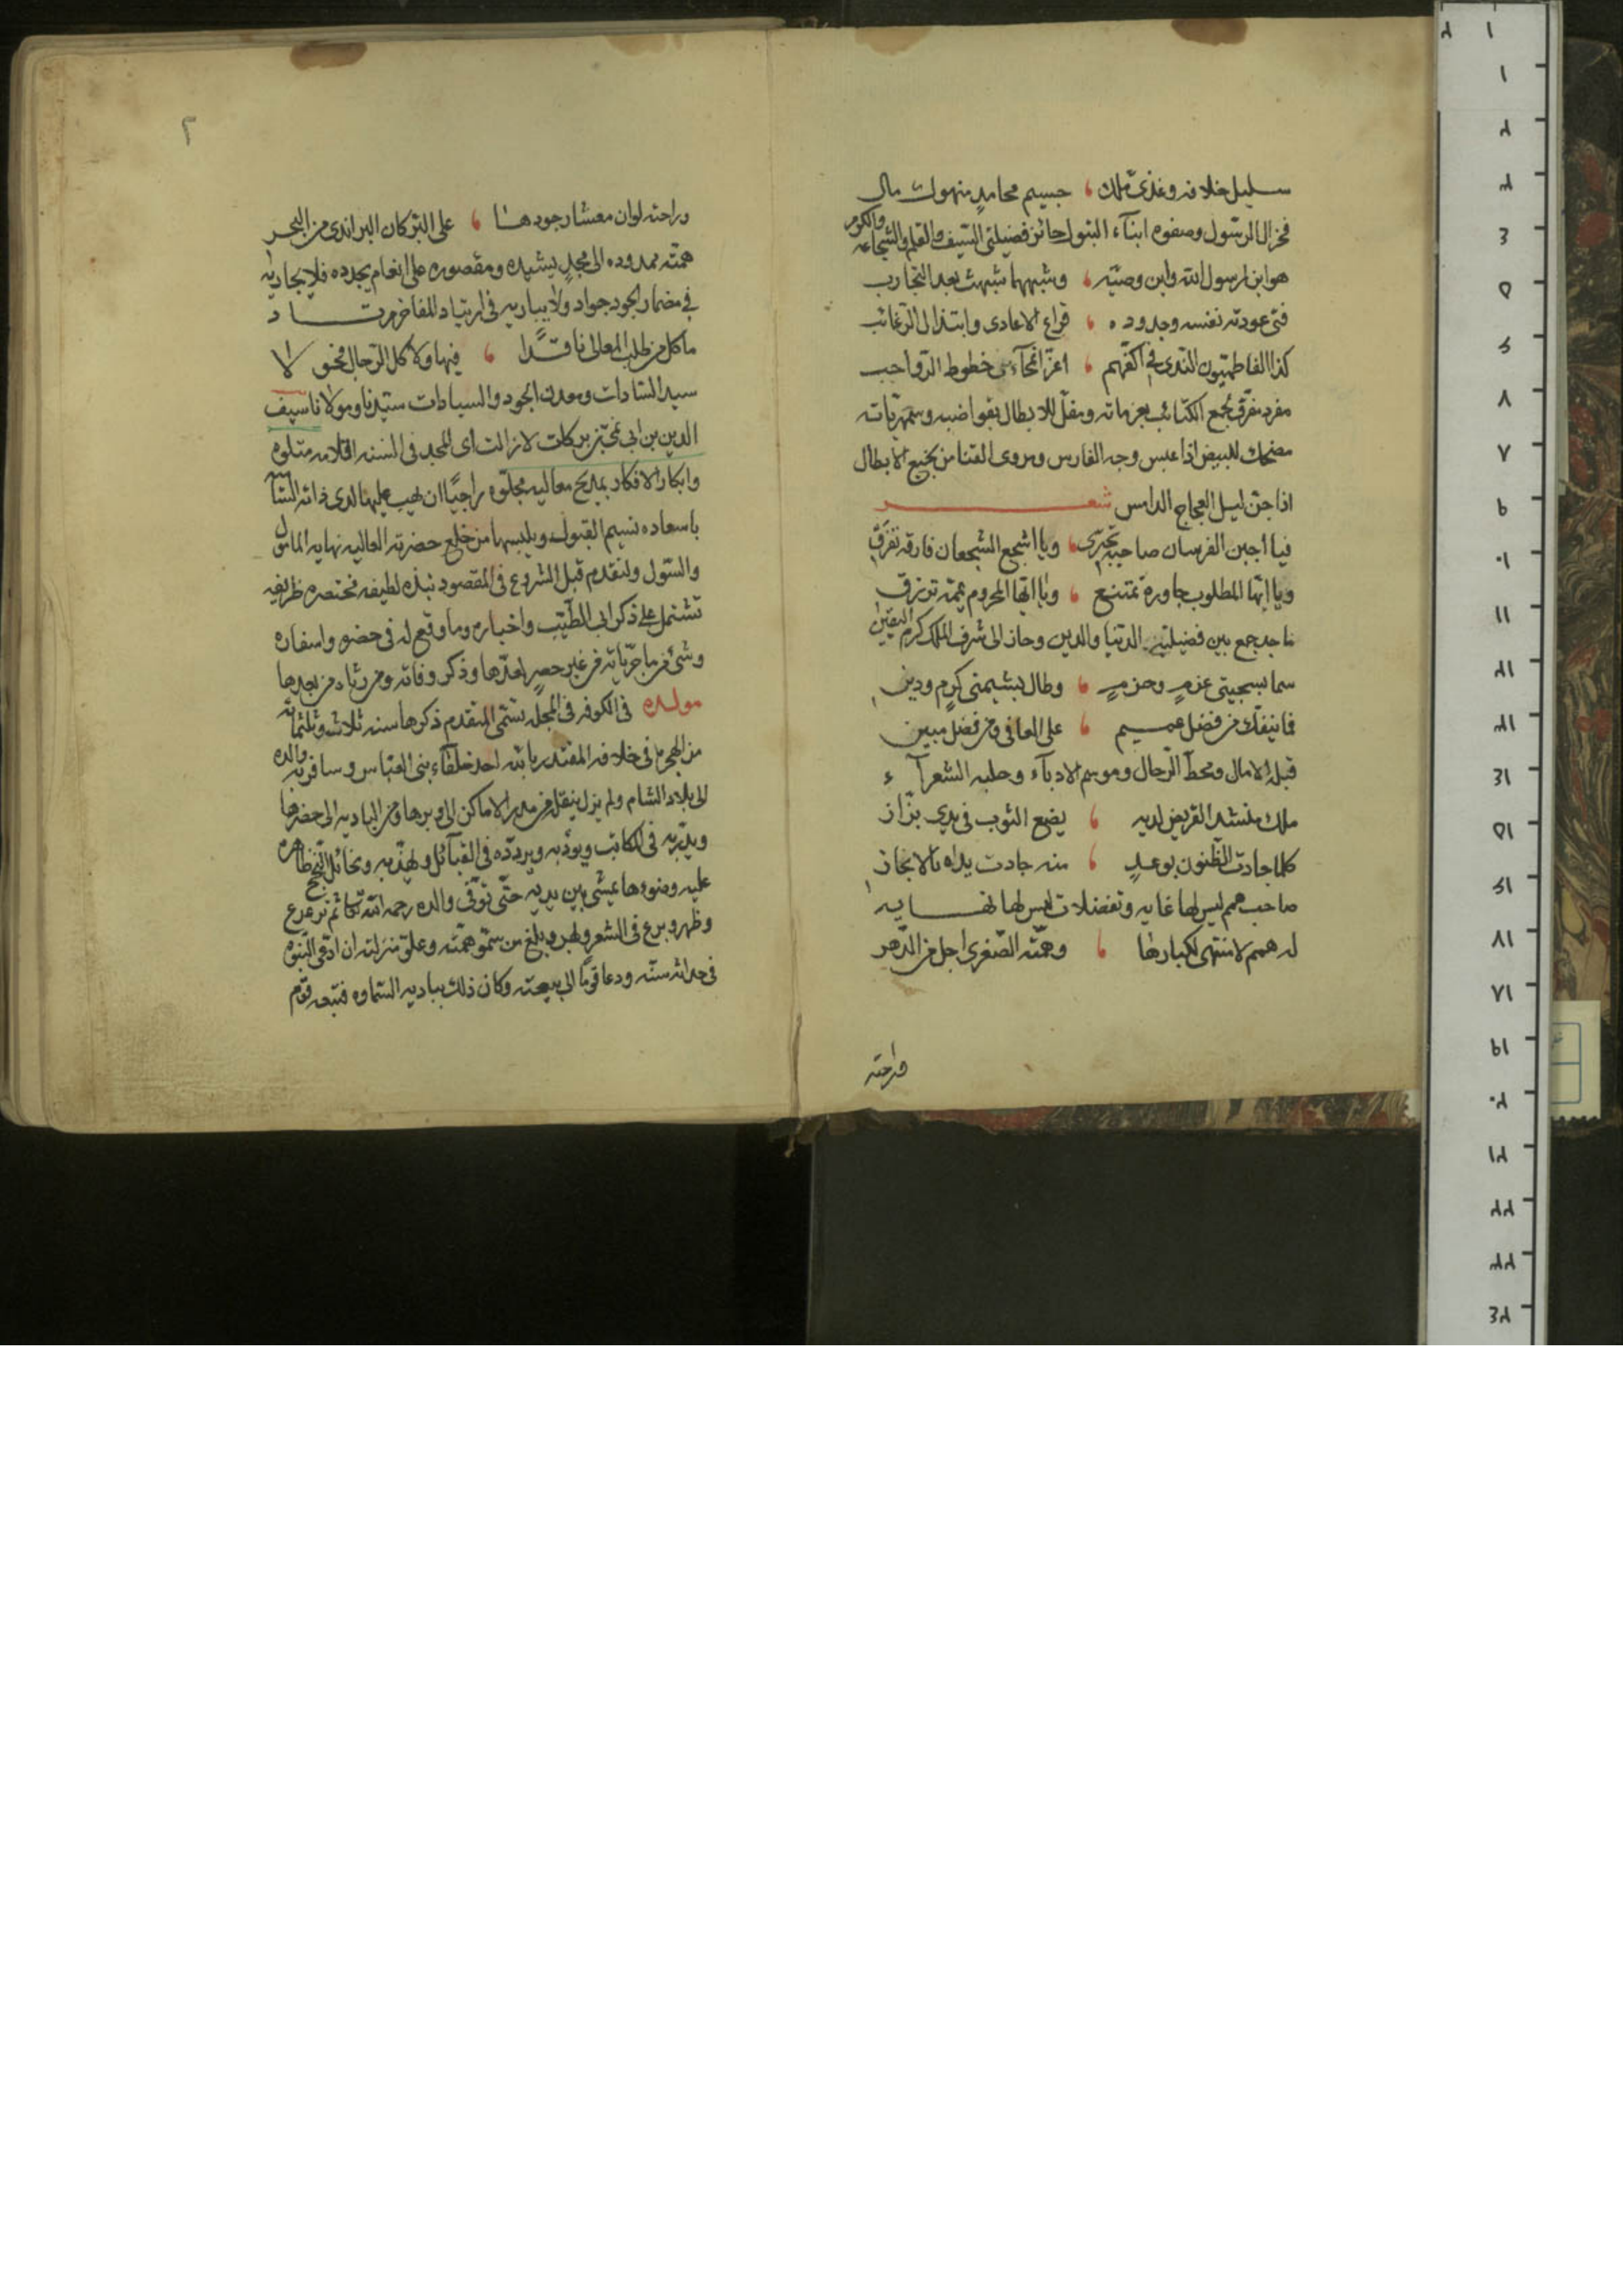 سليل خلافه وغذى ملك ، جسيم محامد منهوك مال
فخر ال الرسول وصفوه ابناء البتول حائز فضيلتى السيف والقلم والشجاعه والكرم
هو ابن رسول الله وابن وصيه ، وشبههما شبهت بعد التجارب
فتى عودته نفسه وجدوده ، قراع الاعادى وابتذال الرغائب
كذا الفاطميون الندى فى اكفهم ، اعز انمحاء من خطوط الرواجب
مفرد مفرق جمع الكتائب بعزماته ومفلل الابطال بقواضبه وسمهرياته
مضحك للبيض اذا عبس وجه الفارس ومروى القنا من نجيع الابطال
اذا جن ليل العجاج الدامس شعر
فيا أجبن الفرسان صاحبه تجترى ، ويا اشجع الشجعان فارقه تفرق
ويا ايها المطلوب جاوره تمتنع ، ويا ايها المحروم يممه ترزق
ماجد جمع بين فضيلتى الدنيا والدين وحاز الى شرف الملك كرم اليقين
سما بسجيتى عزم وحزم ، وطال بشيمتى كرم ودين
فما ينفك من فضل عميم ، على العافى ومن فضل مبين
قبلة الامال ومحط الرحال وموسم الادباء وحلبه الشعراء
ملك منشد القريض لديه ، يضع الثوب فى يدى بزاز
كلما جادت الظنون بوعد ، منه جادت يداه بالانجاز
صاحب همم ليس لها غايه وتفضلات ليس لها نهايه
له همم لا منتهى لكبارها ، وهمته الصغرى اجل من الدهر
وراحته
٢
وراحته لو ان معشار جودها ، على البر كان البر اندى من البحر
همته ممدوده الى مجد يشيده ومقصوره على انعام يجدده فلا يجاريه
فى مضمار الجود جواد ولا يباريه فى ارتياد المفاخر مرتاد
ما كل من طلب المعالى نافذا ، فيها ولا كل الرجال فحولا
سيد السادات ومعدن الجود والسيادات سيدنا ومولانا سيف
الدين بن ابى نمى بن بركات لا زالت اى المجد فى السنه اقلامه متلوه
وابكار الافكار بمديح معاليه مجلوه راجيا ان يهب عليها لدى ذاته
باسعاده نسيم القبول ويلبسها من خلع حضرته العاليه نهايه المامول
والسول ولنقدم قبل الشروع فى المقصود نبذه لطيفه مختصره ظريفه
تشتمل على ذكر ابى الطيب واخباره وما وقع له فى حضره واسفاره
وشئ من ماجرياته من غير حصر لعدها وذكر وفاته ومن رثاه من بعدها
مولده فى الكوفه فى المحله المتقدم ذكرها سنه ثلاث وثلثمائه
من الهجره فى خلافه المقتدر بالله احد خلفاء بنى العباس وسافر به والده
الى بلاد الشام ولم يزل ينقله من مدر الاماكن الى وبرها ومن الباديه الى حضرها
ويدربه فى المكاتب ويودبه ويردده فى القبائل ويهذبه ومخائل النجح ظاهره
عليه وضوءها يمشى بين يديه حتى توفى والده رحمه الله تعالى ثم ترعرع
وظهر وبرع فى الشعر ومهر وبلغ من سمو همته وعلو منزلته ان ادعى النبوه
فى حداثه سنه ودعا قوما الى بيعته وكان ذلك بباديه السماوه فتبعه قوم